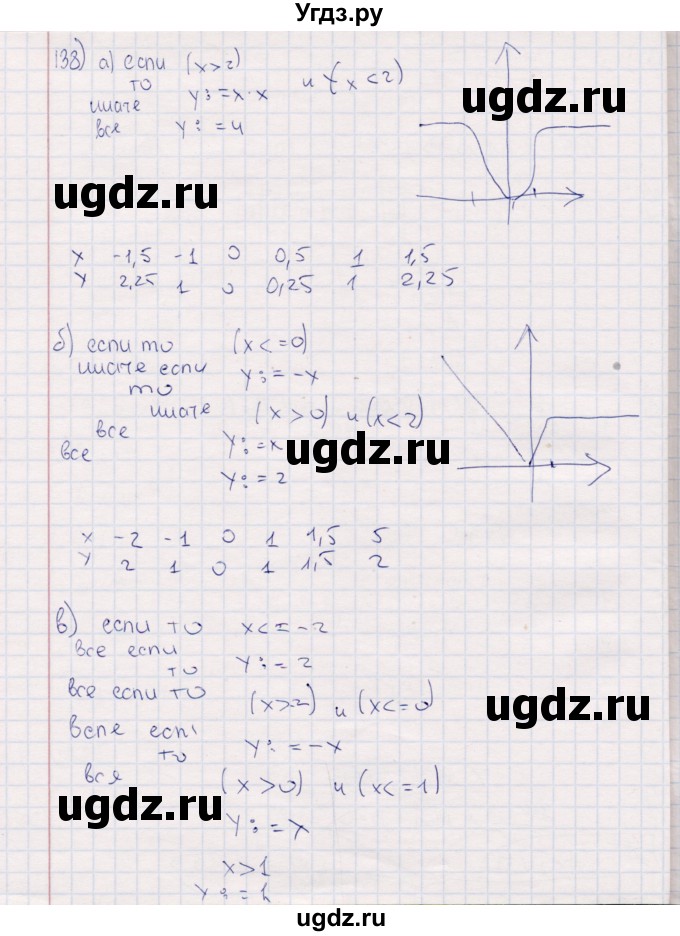 Угдз.ру
138) а) если (x>2) и (x<2)
то y:=x·x
иначе
все y:=4
ugdz.ru
ugdz.ru
x -1,5 -1 0 0,5 1 1,5
y 2,25 1 0 0,25 1 2,25
б) если то (x<=0)
иначе если y:=-x
то
иначе (x>0) и (x<2)
все y:=x
все
y:=2
ugdz.ru
x -2 -1 0 1 1,5 5
y 2 1 0 1 1,5 2
в) если то x<=-2
все если y:=2
то
все если то (x>-2) и (x<=0)
ugdz.ru
если
то y:=-x
все (x>0) и (x<=1)
ugdz.ru
y:=x
x>1
y:=1
ugdz.ru